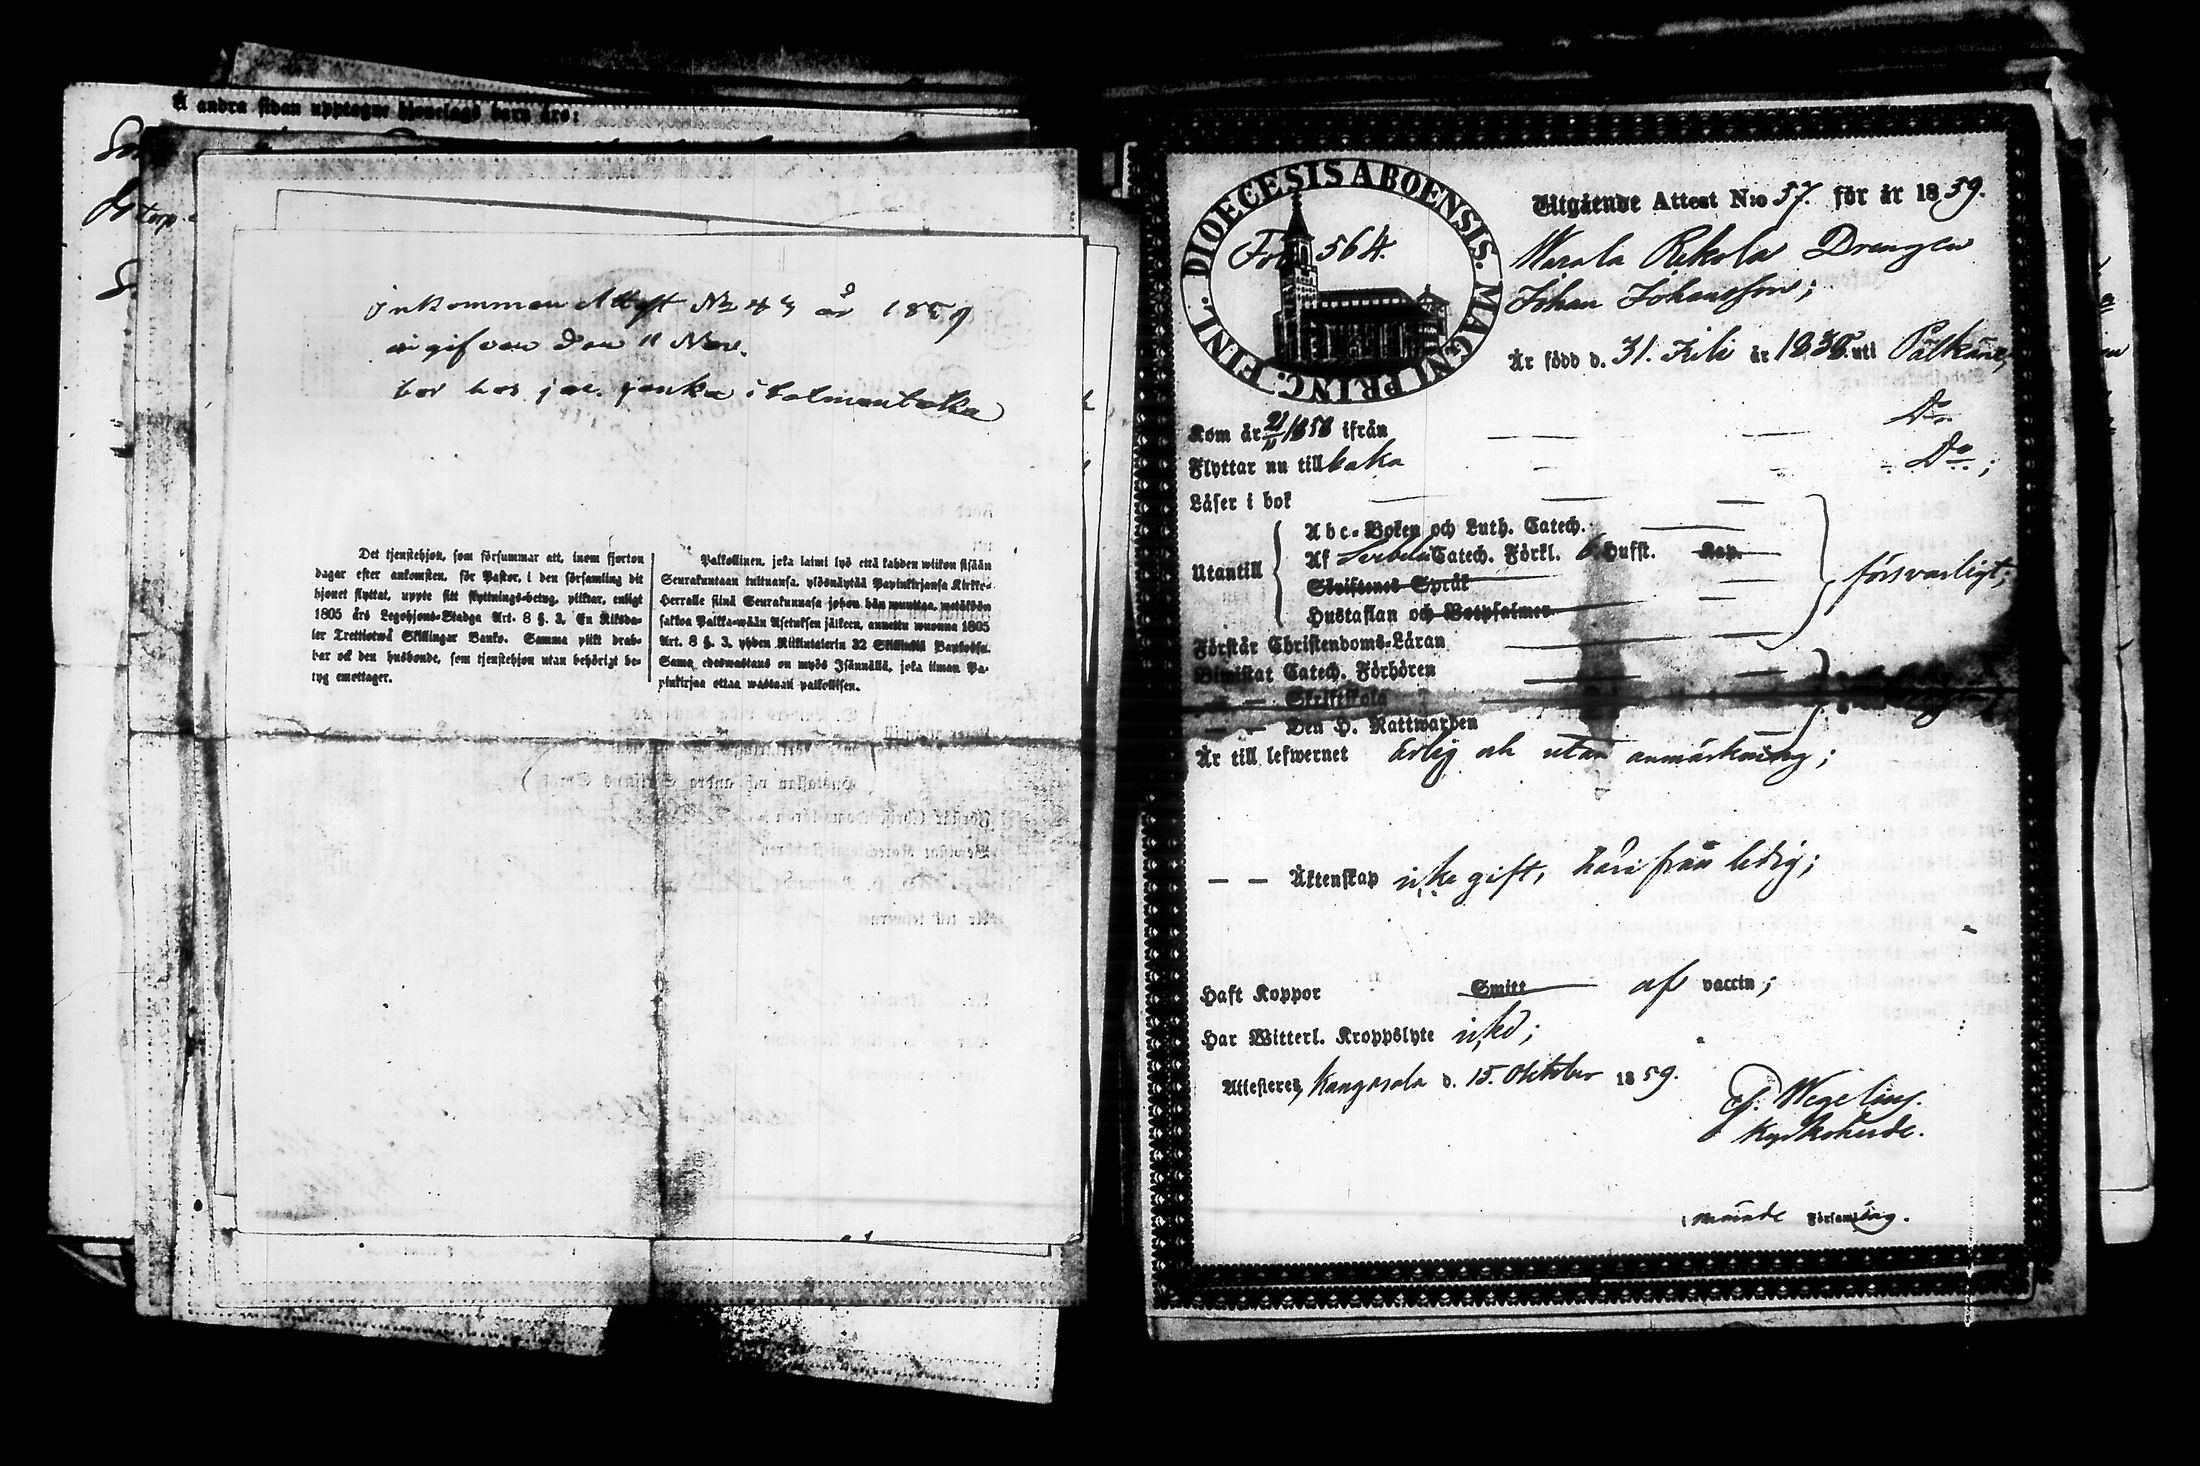 Å andra sidan upptagne hjonelags barn äro:
torp
Inkommen Attest No 43 år 1859
ingifven den 11 Nov.
bor hos i
Det tjenstehjon, som försummar att, inom fjorton
dagar efter ankomsten, för Pastor, i den församling dit
hjonet flyttat, uppte sitt flyttnings-betyg, pliktar, enligt
1805 års Legohjons-Stadga Art. 8 §. 3. En Riksda-
ler Trettiotwå Skillingar Banko. Samma plikt drab-
bar ock den husbonde, som tjenstehjon utan behörigt be-
tyg emottager.
Palkollinen, joka laimi lyö että kahden wiikon sisään
Seurakuntaan tultuansa, ylösnäyttää Papinkirjansa Kirkko-
Herralle siinä Seurakunnasa johon hän muuttaa, wetäköön
sakkoa Palkka-wään Asetuksen jälkeen, annettu wuonna 1805
Art. 8 §. 3. yhden Riikintalerin 32 Skillinkiä Bankossa.
Sama edeswastaus on myös Isännällä, joka ilman Pa-
pinkirjaa ottaa wastaan palkollisen.
DIOECESIS ABOENSIS. MAGNI PRINC. FINL.
Fol. 564.
Utgående Attest N:o 57. för år 1859.
Warala Rekola Drengen
Johan Johansson;
Är född d. 31. Juli år 1835 uti Pälkäne,
Kom år 1858 ifrån Do.
Flyttar nu tillbaka Do.;
Läser i bok
Utantill
Abc-Boken och Luth. Catech.
Af Catech. Förkl. 6 Hufst. Kap.
Skriftenes Språk
Hustaflan och Botpsalmer
försvarligt;
Förstår Christendoms-Läran
Biwistat Catech. Förhören
— — Skriftskola
— — Den H. Nattwarden
Är till lefwernet ärlig och utan anmärkning;
— — Äktenskap icke gift, härifrån ledig;
Haft Koppor Smitt af vaccin;
Har Witterl. Kroppslyte icke;
Attesterer, Kangasala d. 15. Oktober 1859.
Wegelius.
Kyrkoherde.
i Församling.